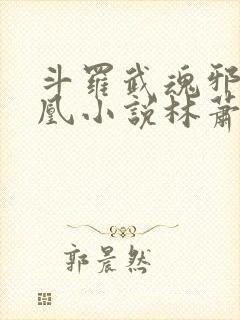 斗羅武魂邪
凰小說林蕭
郭晨然